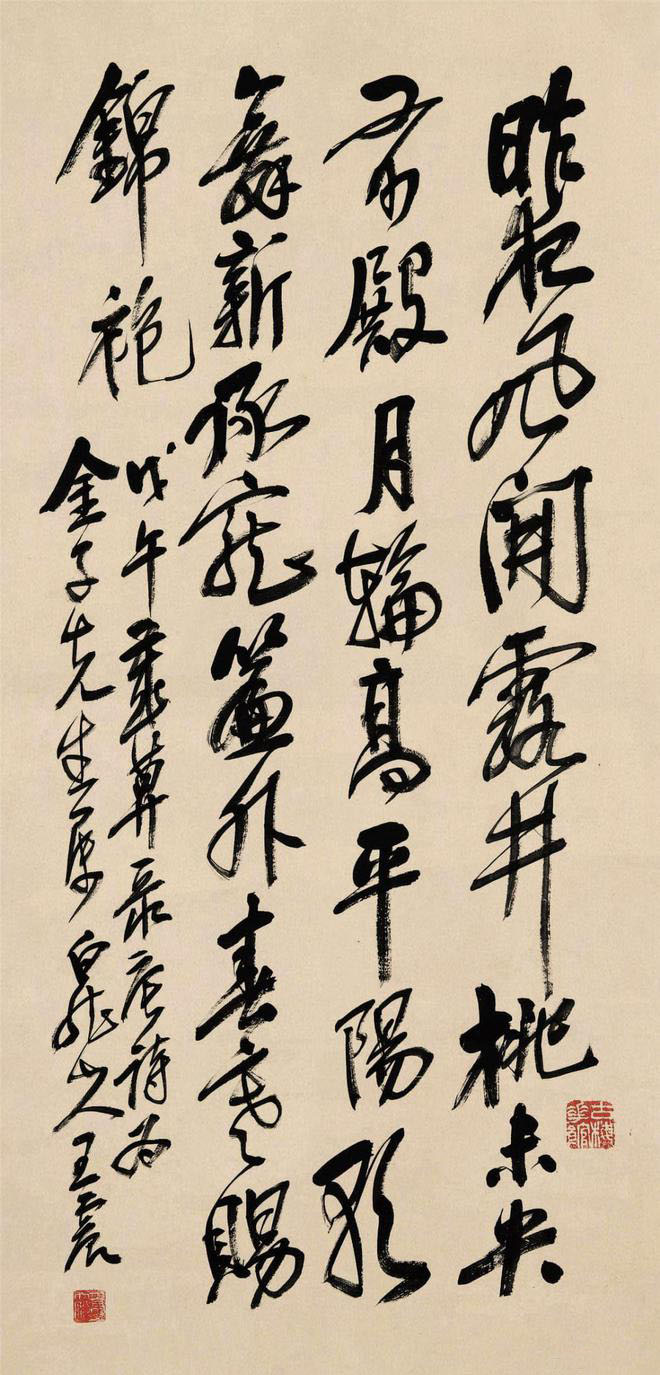 昨夜風開露井桃未央
前殿月輪高平陽歌
舞新承寵簾外春寒賜
錦袍
戊午錄唐詩為
金子先生屬白龍山人王震